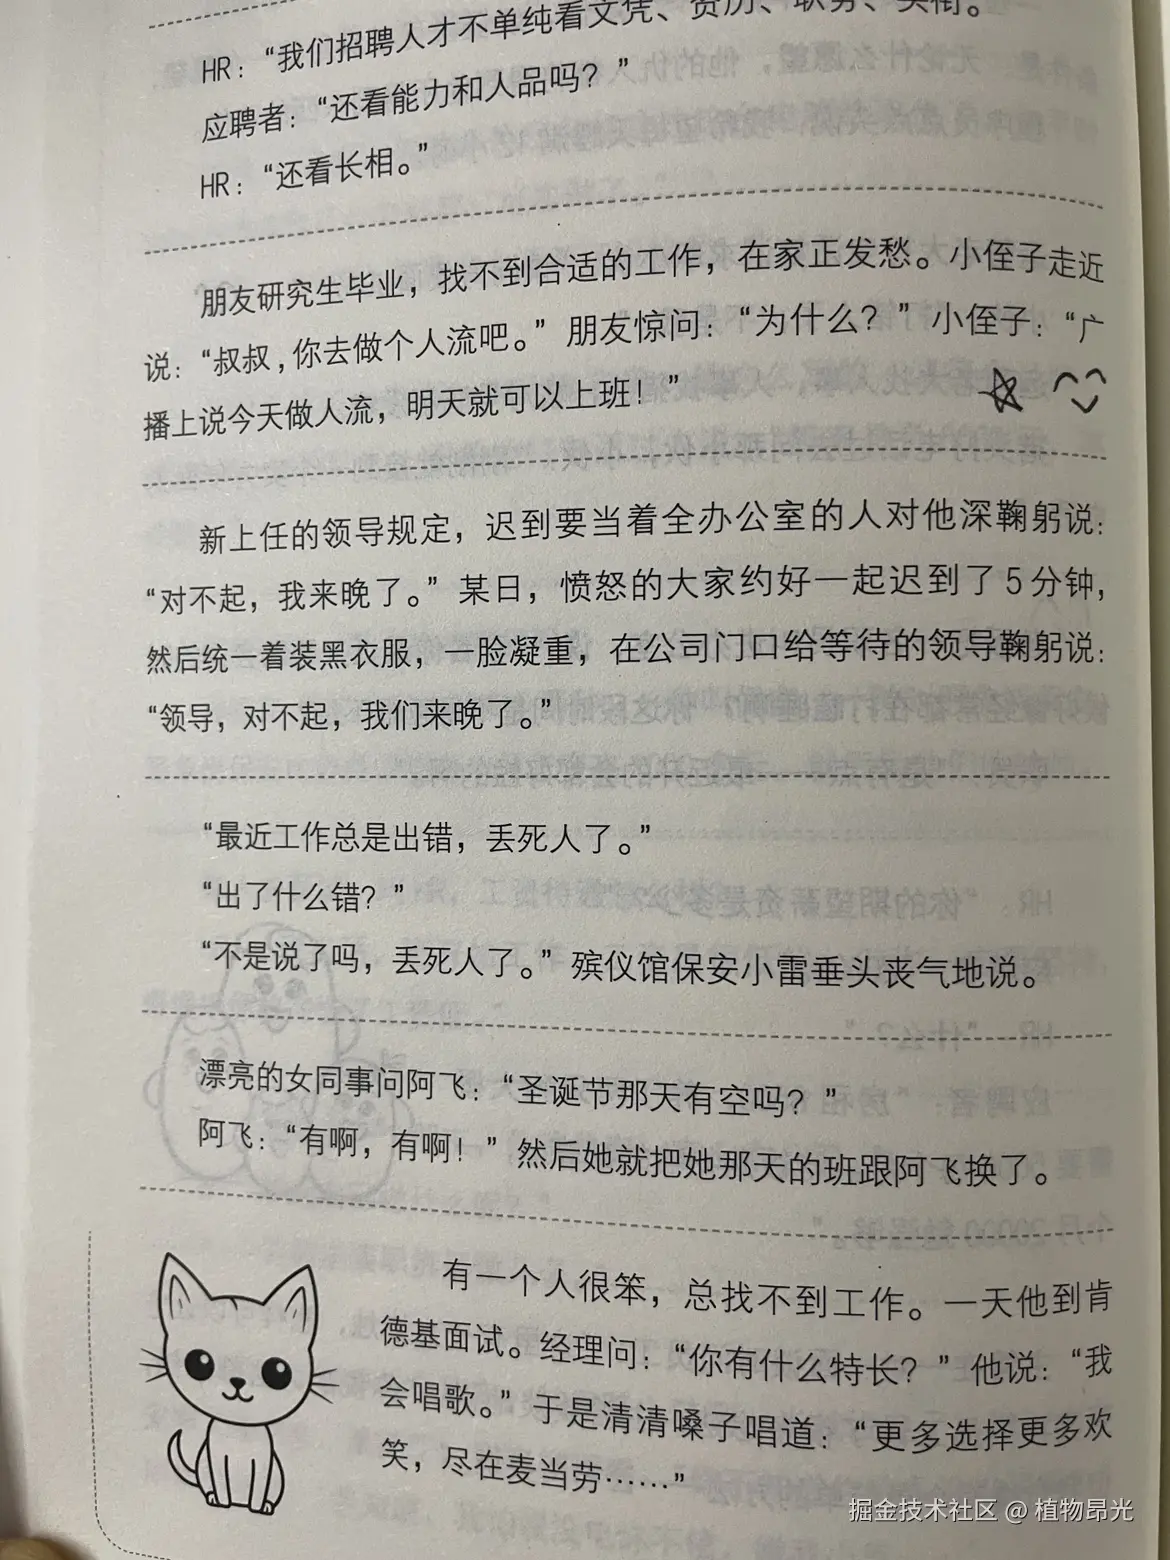 HR：“我们招聘人才不单纯看文凭、资历、职务、头衔。
应聘者：“还看能力和人品吗？”
HR：“还看长相。”
朋友研究生毕业，找不到合适的工作，在家正发愁。小侄子走近
说：“叔叔，你去做个人流吧。”朋友惊问：“为什么？”小侄子：“广
播上说今天做人流，明天就可以上班！”
新上任的领导规定，迟到要当着全办公室的人对他深鞠躬说：
“对不起，我来晚了。”某日，愤怒的大家约好一起迟到了5分钟，
然后统一着装黑衣服，一脸凝重，在公司门口给等待的领导鞠躬说：
“领导，对不起，我们来晚了。”
“最近工作总是出错，丢死人了。”
“出了什么错？”
“不是说了吗，丢死人了。”殡仪馆保安小雷垂头丧气地说。
漂亮的女同事问阿飞：“圣诞节那天有空吗？”
阿飞：“有啊，有啊！”然后她就把她那天的班跟阿飞换了。
有一个人很笨，总找不到工作。一天他到肯
德基面试。经理问：“你有什么特长？”他说：“我
会唱歌。”于是清清嗓子唱道：“更多选择更多欢
笑，尽在麦当劳……”
掘金技术社区 @ 植物昂光